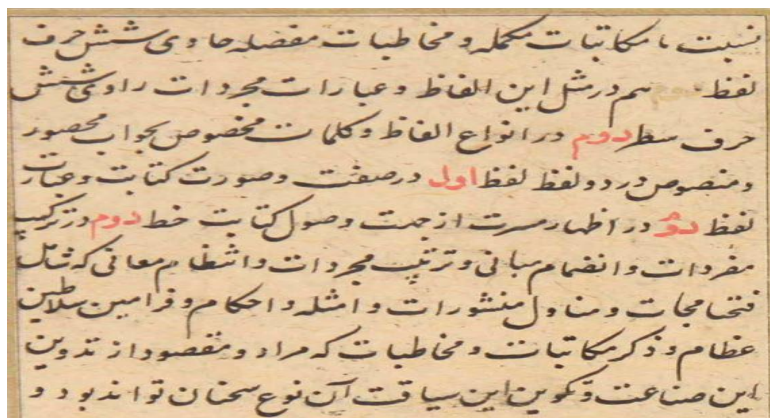 نسبت با مکاتبات مکمله و مخاطبات مفصله حاوی شش حرف
لفظ سم در مثل این الفاظ و عبارات مجردات راوی شش
حرف سطر دوم در انواع الفاظ و کلمات مخصوص بجواب محصور
و منصوص در دو لفظ لفظ اول در صفت و صورت کتابت و عبارت
لفظ دو در اظهار مسرت از جهت وصول کتابت خط دوم در ترکیب
مفردات و انضمام مبانی و ترتیب مجردات و انتظام معانی که شامل
فتحنامجات و مناول منشورات و امثله و احکام و فرامین سلاطین
عظام و ذکر مکاتبات و مخاطبات که مراد و مقصود از تدوین
این صناعت و تکوین این سیاقت آن نوع سخنان تواند بود و